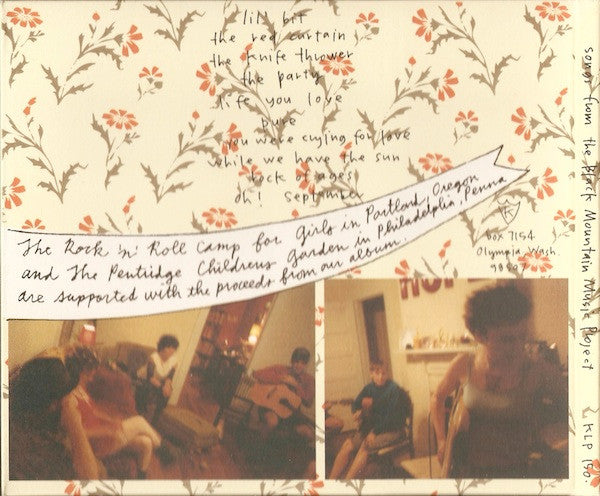 lil' bit
the red curtain
the knife thrower
the party
life you love
pure
you were crying for love
while we have the sun
rock of ages
oh! september
The Rock 'n' Roll Camp for Girls in Portland, Oregon
and The Pentridge Childrens Garden in Philadelphia, Penna
are supported with the proceeds from our album.
K
box 7154
Olympia, Wash.
98507
HOPE
songs from the Black Mountain Music Project
KLP 150.